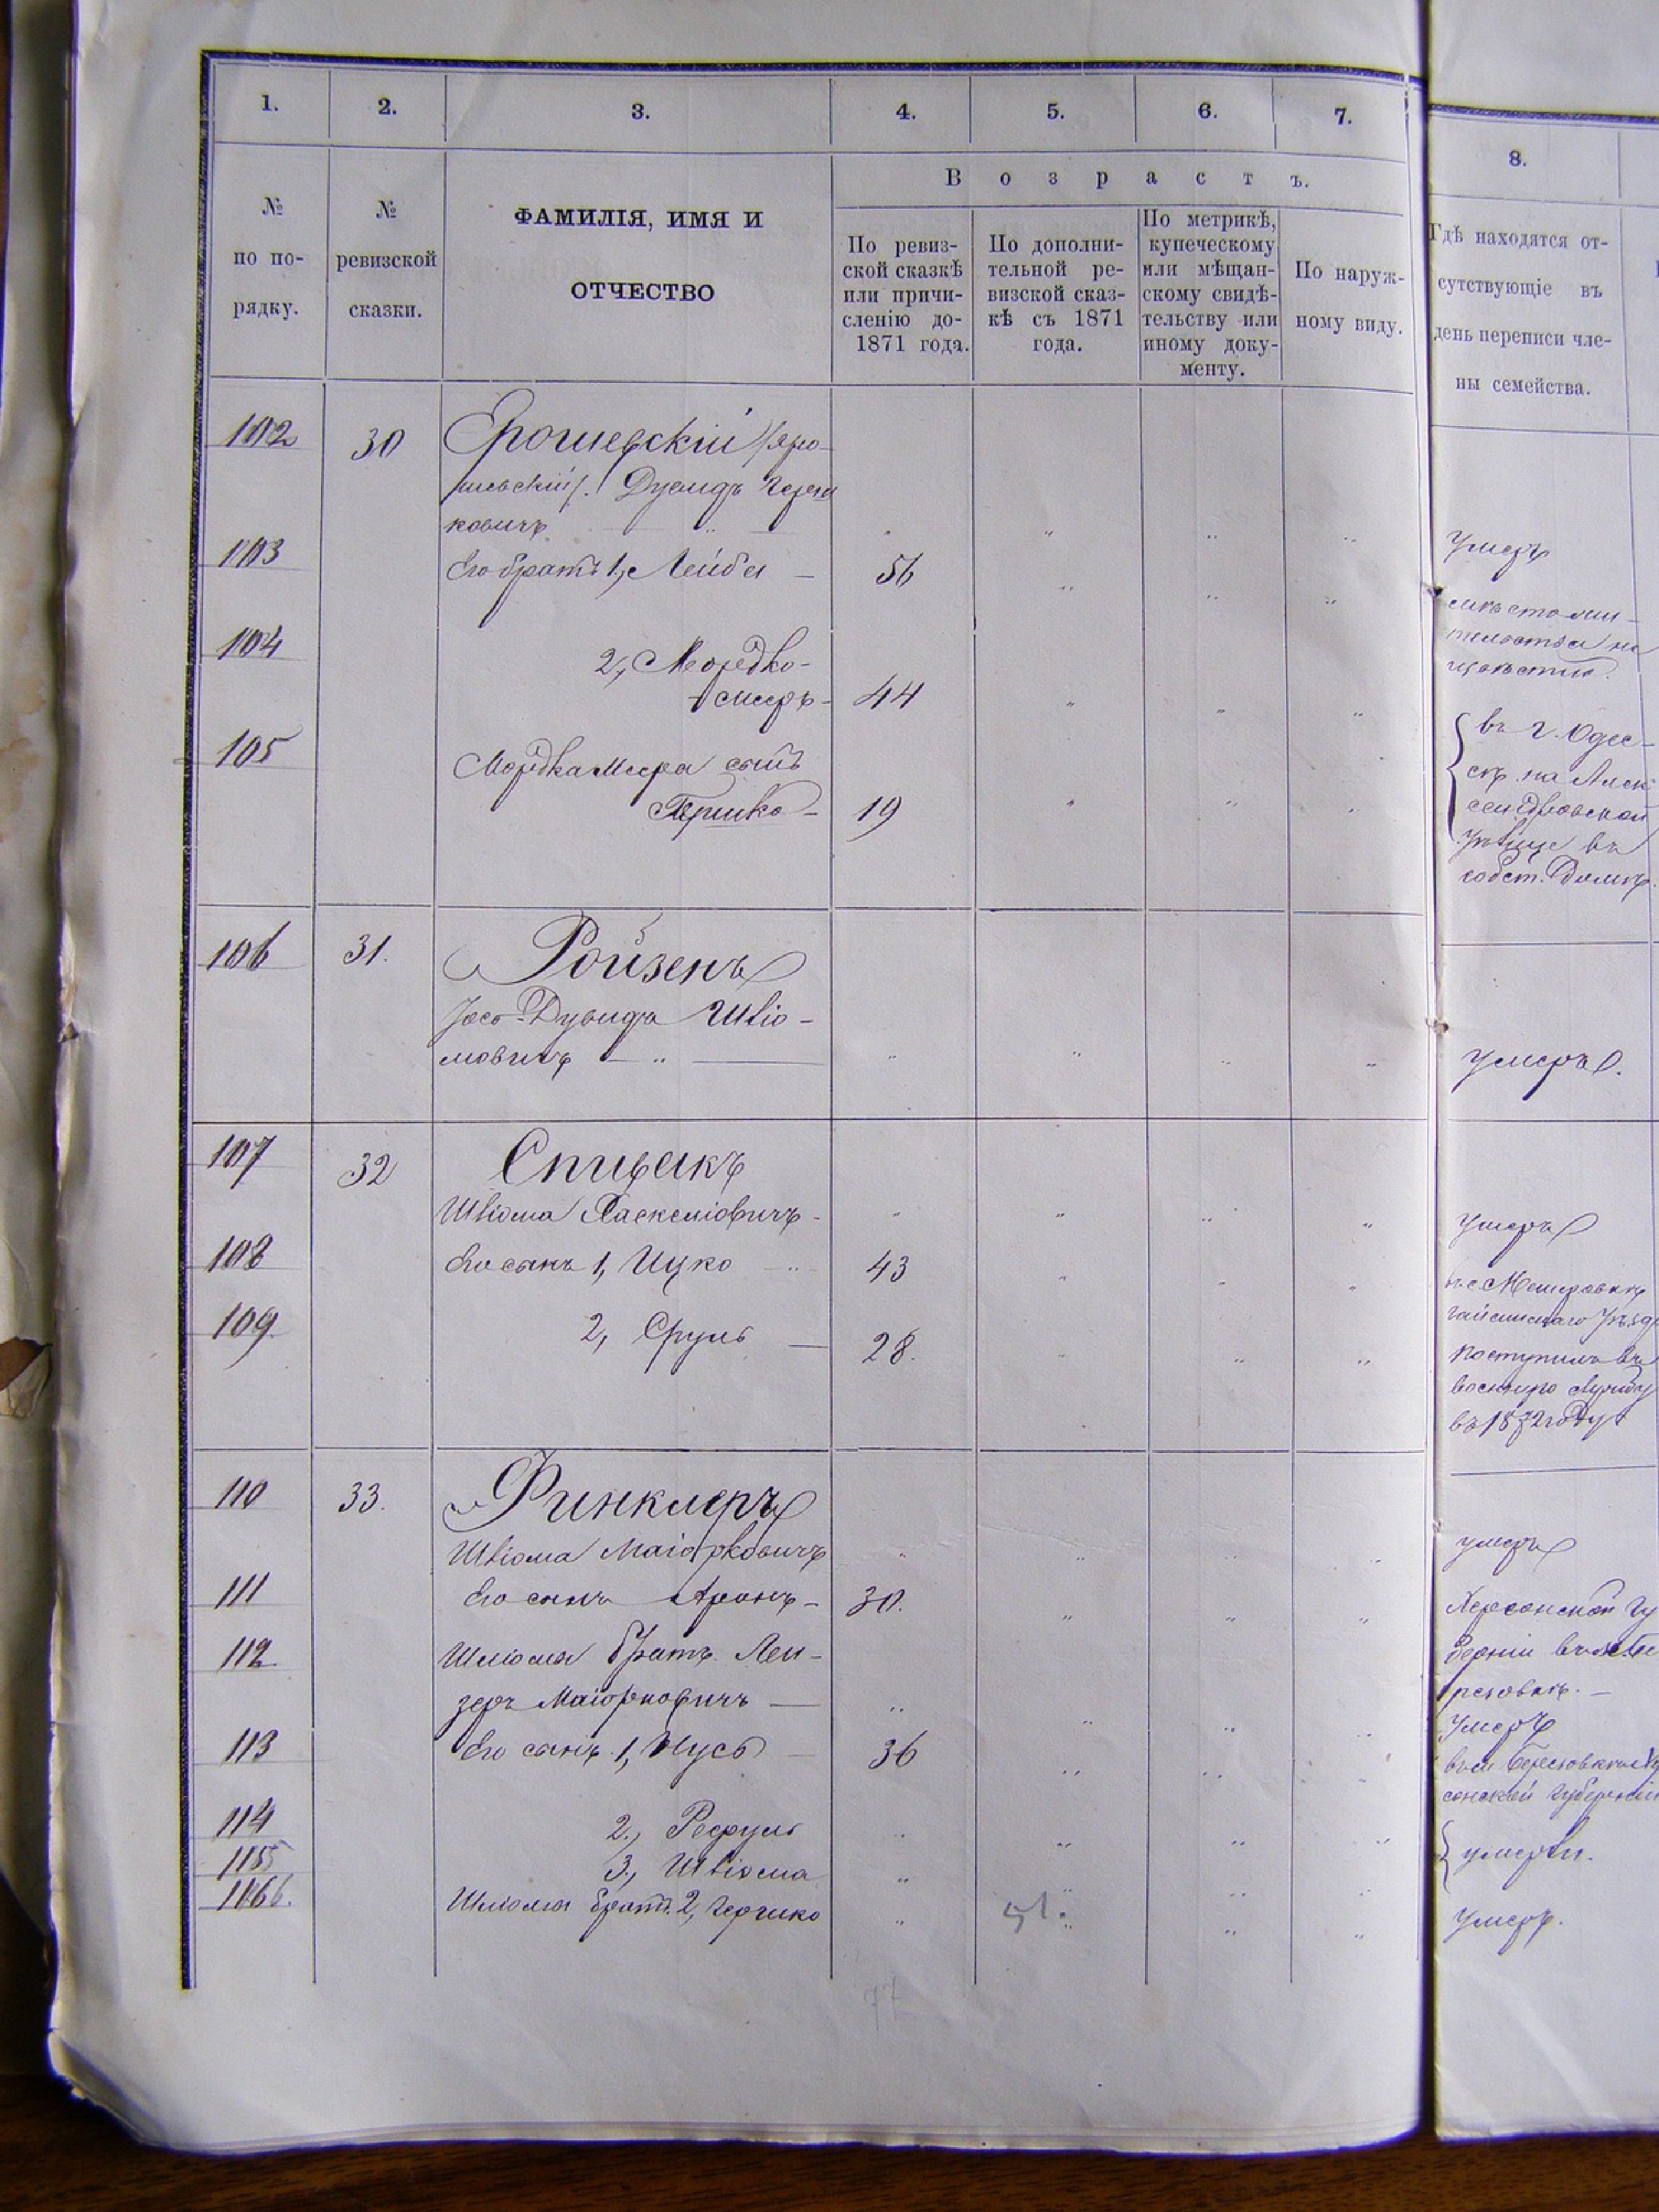 1.
2.
3.
4.
5.
6.
7.
8.
№
по по-
рядку.
№
ревизской
сказки.
ФАМИЛІЯ, ИМЯ И
ОТЧЕСТВО
В о з р а с т ъ.
По ревиз-
ской сказкѣ
или причи-
сленію до-
1871 года.
По дополни-
тельной ре-
визской сказ-
кѣ съ 1871
года.
По метрикѣ,
купеческому
или мѣщан-
скому свидѣ-
тельству или
иному доку-
менту.
По наруж-
ному виду.
Гдѣ находятся от-
сутствующіе въ
день переписи чле-
ны семейства.
102 30 Ерошевскій /Яро-
шевскій/. Дувидъ
ковичъ Умеръ
103 Его братъ 1, Лейба 56
104 2, Мордко-
Мееръ 44
105 Мордка Меера сынъ
Гершко 19
въ г. Одес-
сѣ на Алек
сандровской
улице въ
собст. домѣ.
106 31. Ройзенъ
Дувидъ Шліо-
мовичъ умеръ.
107 32 Спивакъ
Шліома Хаскеліовичъ умеръ
108 Его сынъ 1, Ицко 43
109. 2, Сруль 28.
Поступилъ въ
военную службу
въ 1872 году
110 33. Финклеръ
Шліома Маіорковичъ умеръ
111 Его сынъ Аронъ 30. Херсонской гу
112 Шліомы братъ Лей-
зеръ Маіорковичъ
Умеръ
113 Его сынъ 1, Нусь 36
114 2., Рефуль
115 3., Шліома умерли.
116 Шліомы братъ 2, Гершко 51. умеръ.
77